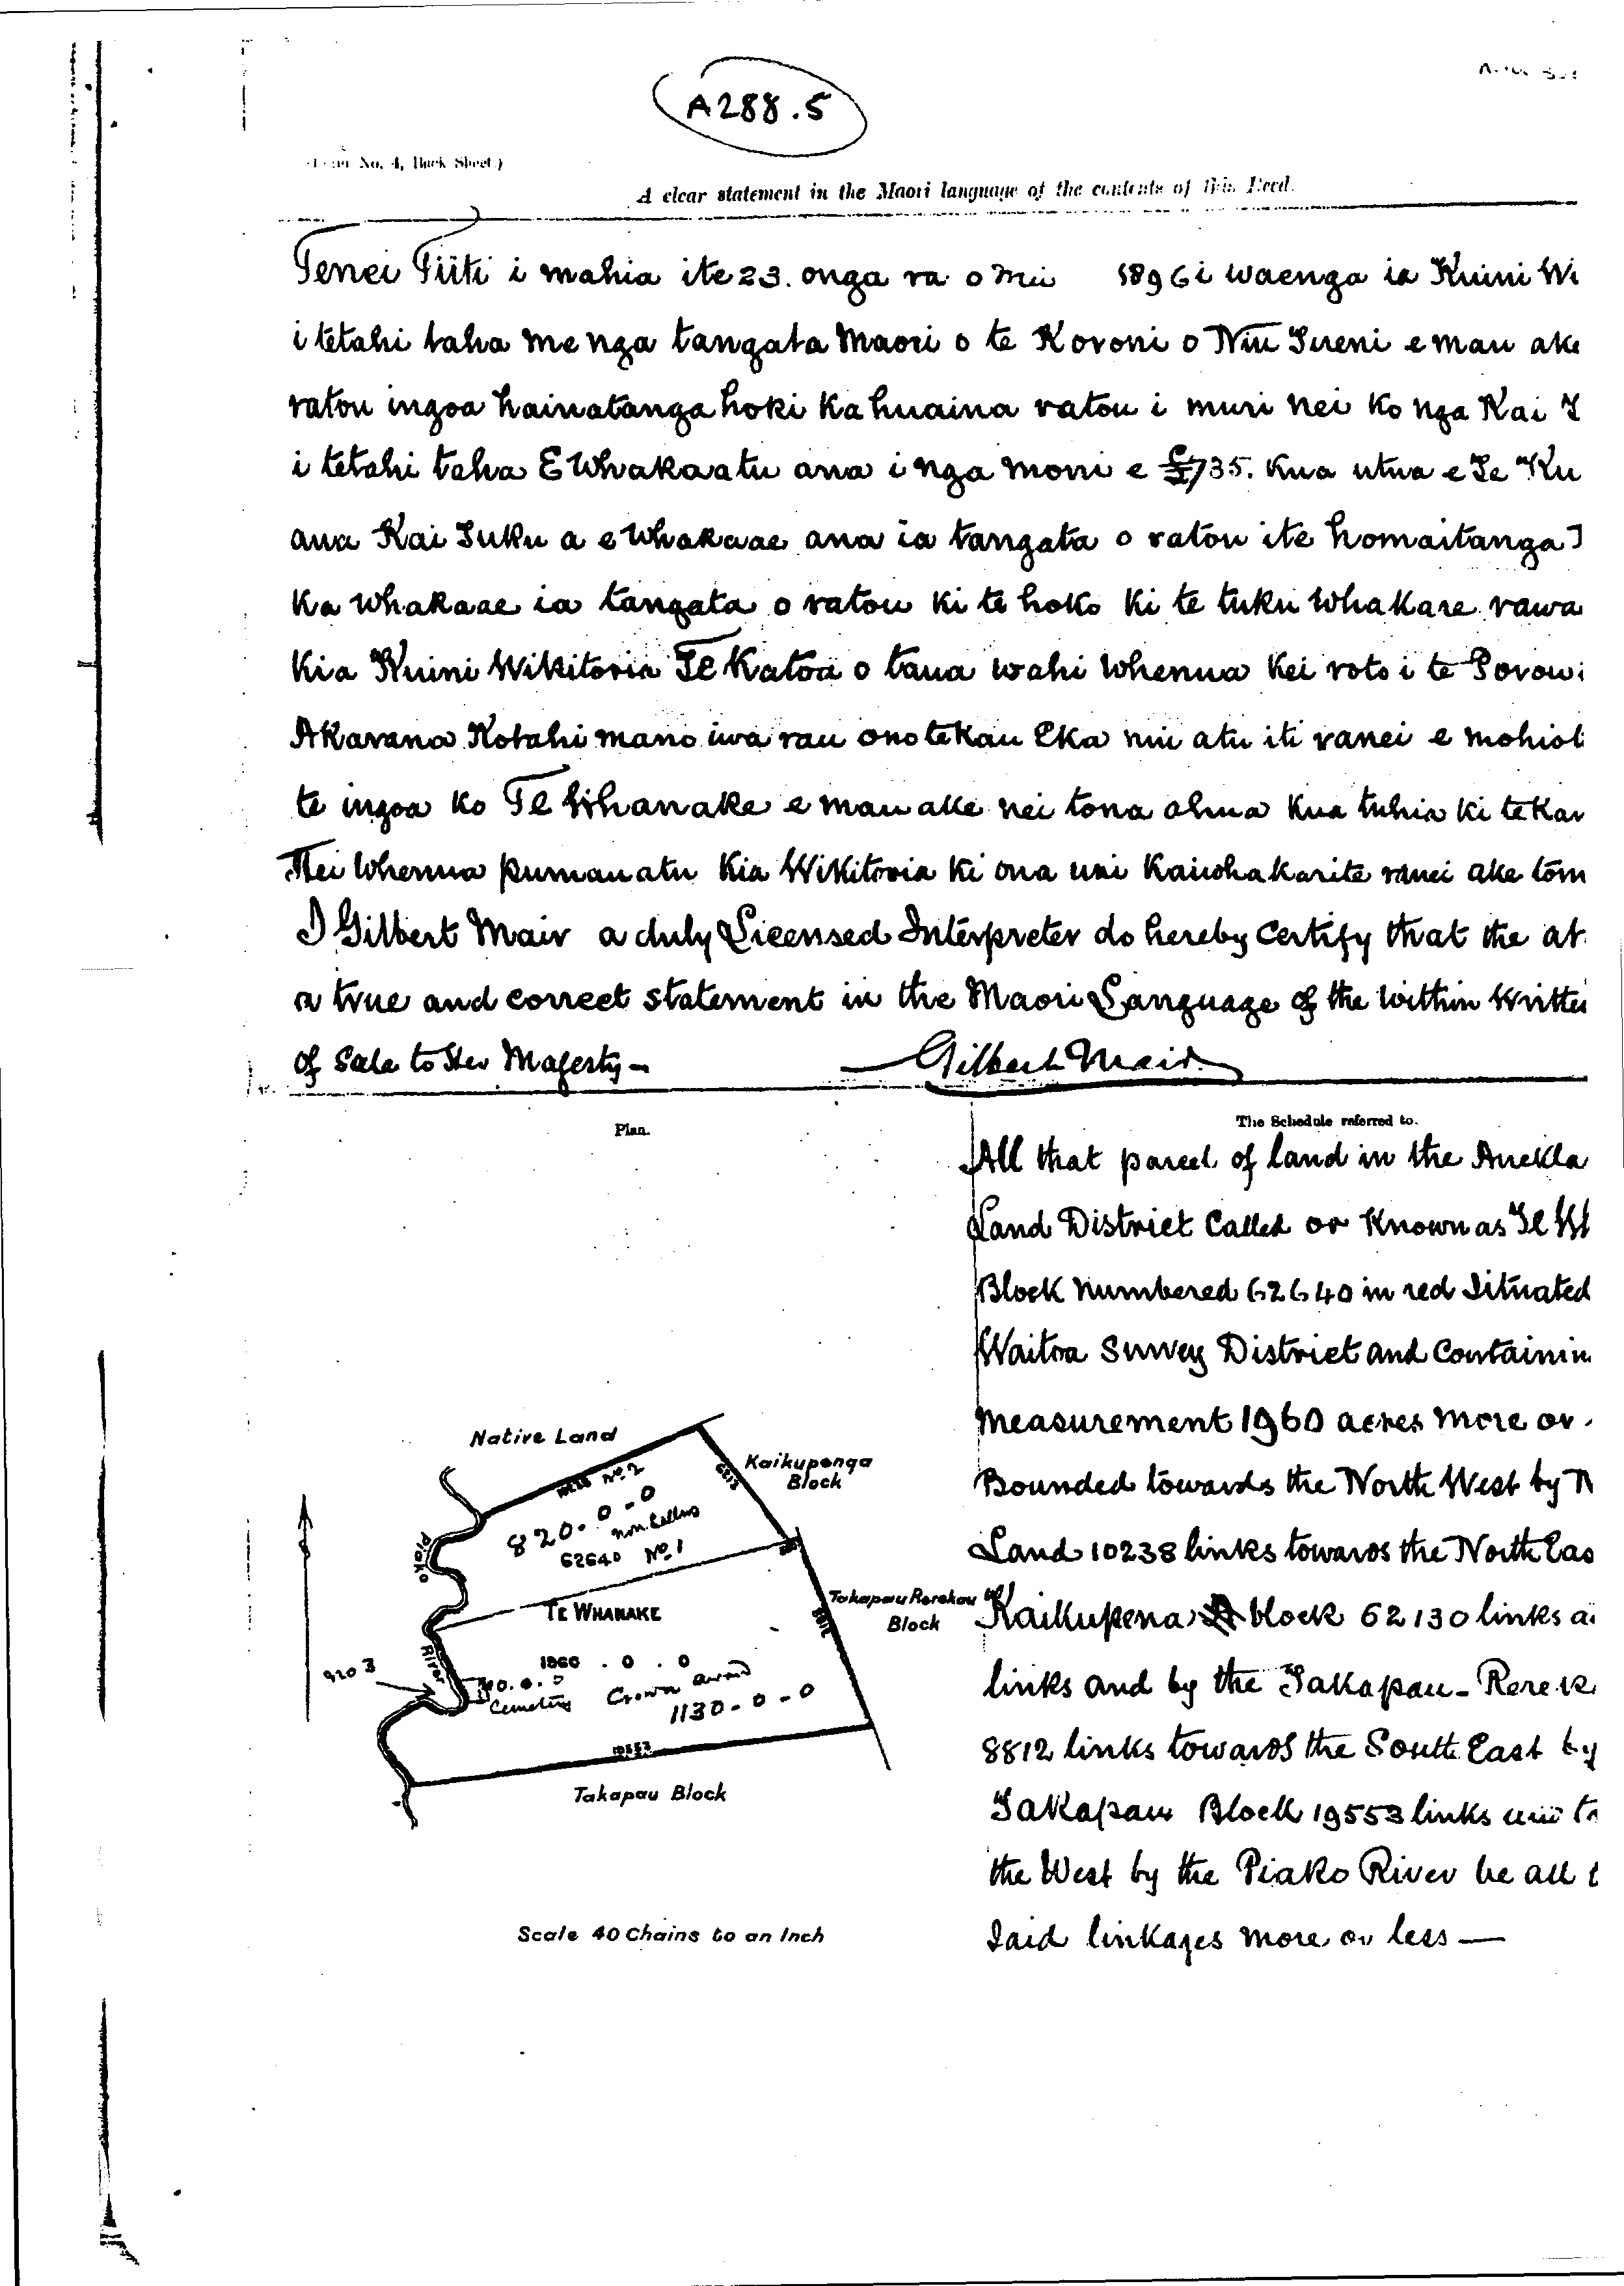 A288.5
No. 4, Back Sheet.)
A clear statement in the Maori language of the contents of this Deed.
Tenei Tiiti i mahia ite 23. onga ra o Mei 1896 i waenga ia Kuini Wi
i tetahi taha me nga tangata Maori o te Koroni o Niu Tireni e mau ake
ratou ingoa hainatanga hoki ka huaina ratou i muri nei ko nga Kai T
i tetahi taha E Whakaatu ana i nga moni e £735. Kua utua e Te Ku
ana Kai Tuku a e whakaae ana ia tangata o ratou ite homaitanga
Ka whakaae ia tangata o ratou ki te hoko ki te tuku whakare rawa
Kia Kuini Wikitoria Te Katoa o taua wahi whenua kei roto i te Porowi
Akarana Kotahi mano iwa rau ono tekau Eka nui atu iti ranei e mohiot
te ingoa ko Te Whanake e mau ake nei tona ahua kua tuhia ki te kar
Hei whenua pumau atu kia Wikitoria ki ona uri kaiwhakarite ranei ake tom
I Gilbert Mair a duly Licensed Interpreter do hereby Certify that the ab
a true and correct statement in the Maori Language of the within writte
of Sale to Her Majesty -
Gilbert Mair.
Plan.
The Schedule referred to.
All that parcel of land in the Auckla
Land District Called or Known as Te Wh
Block numbered 62640 in red Situated
Waitoa Survey District and Containin
measurement 1960 acres more or
Bounded towards the North West by N
Land 10238 links towards the North Eas
Kaikupena block 62130 links a
links and by the Takapau-Rerek
8812 links towards the South East by
Takapau Block 19553 links
the West by the Piako River be all t
Said linkages more or less —
Native Land
No. 2
Kaikupenga
Block
820-0-0
non sellers
62640 No. 1
Piako
River
TE WHANAKE
Takapau Rerekau
Block
1960.0.0
9203
Cemetery
Crown award
1130-0-0
Takapau Block
Scale 40 Chains to an Inch